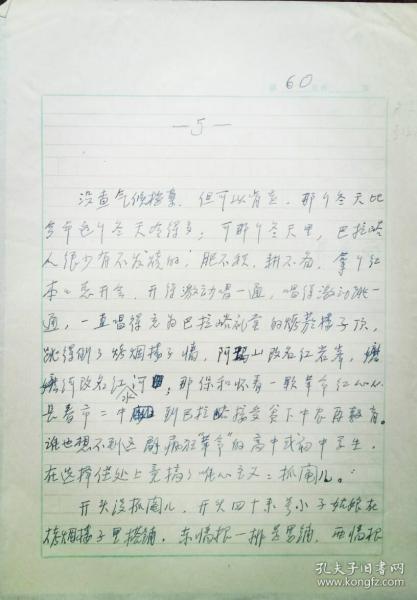 60
—5—
没查气候档案,但可以肯定,那个冬天比
今年这个冬天冷得多;可那个冬天里,巴拉嘎
人很少有不发烧的;肥不积,耕不备,拿个红
本本忘开会,开得激动唱一通,唱得激动跳一
通,一直唱得充为巴拉嘎礼堂的烤菸楼子顶,
跳得倒了烤烟楼子墙,阿玛山改名红岩岸,
河改名红水河;那保和怀着一颗革命红心从
长春市二中到巴拉嘎接受贫下中农再教育。
谁也想不到这群疯狂“革命”的高中或初中学生,
在选择住处上竟搞了唯心主义:抓阄儿。
开头没抓阄儿,开头四十来号小子姑娘在
烤烟楼子里搭铺,东墙根一排是男铺,西墙根
孔夫子旧书网